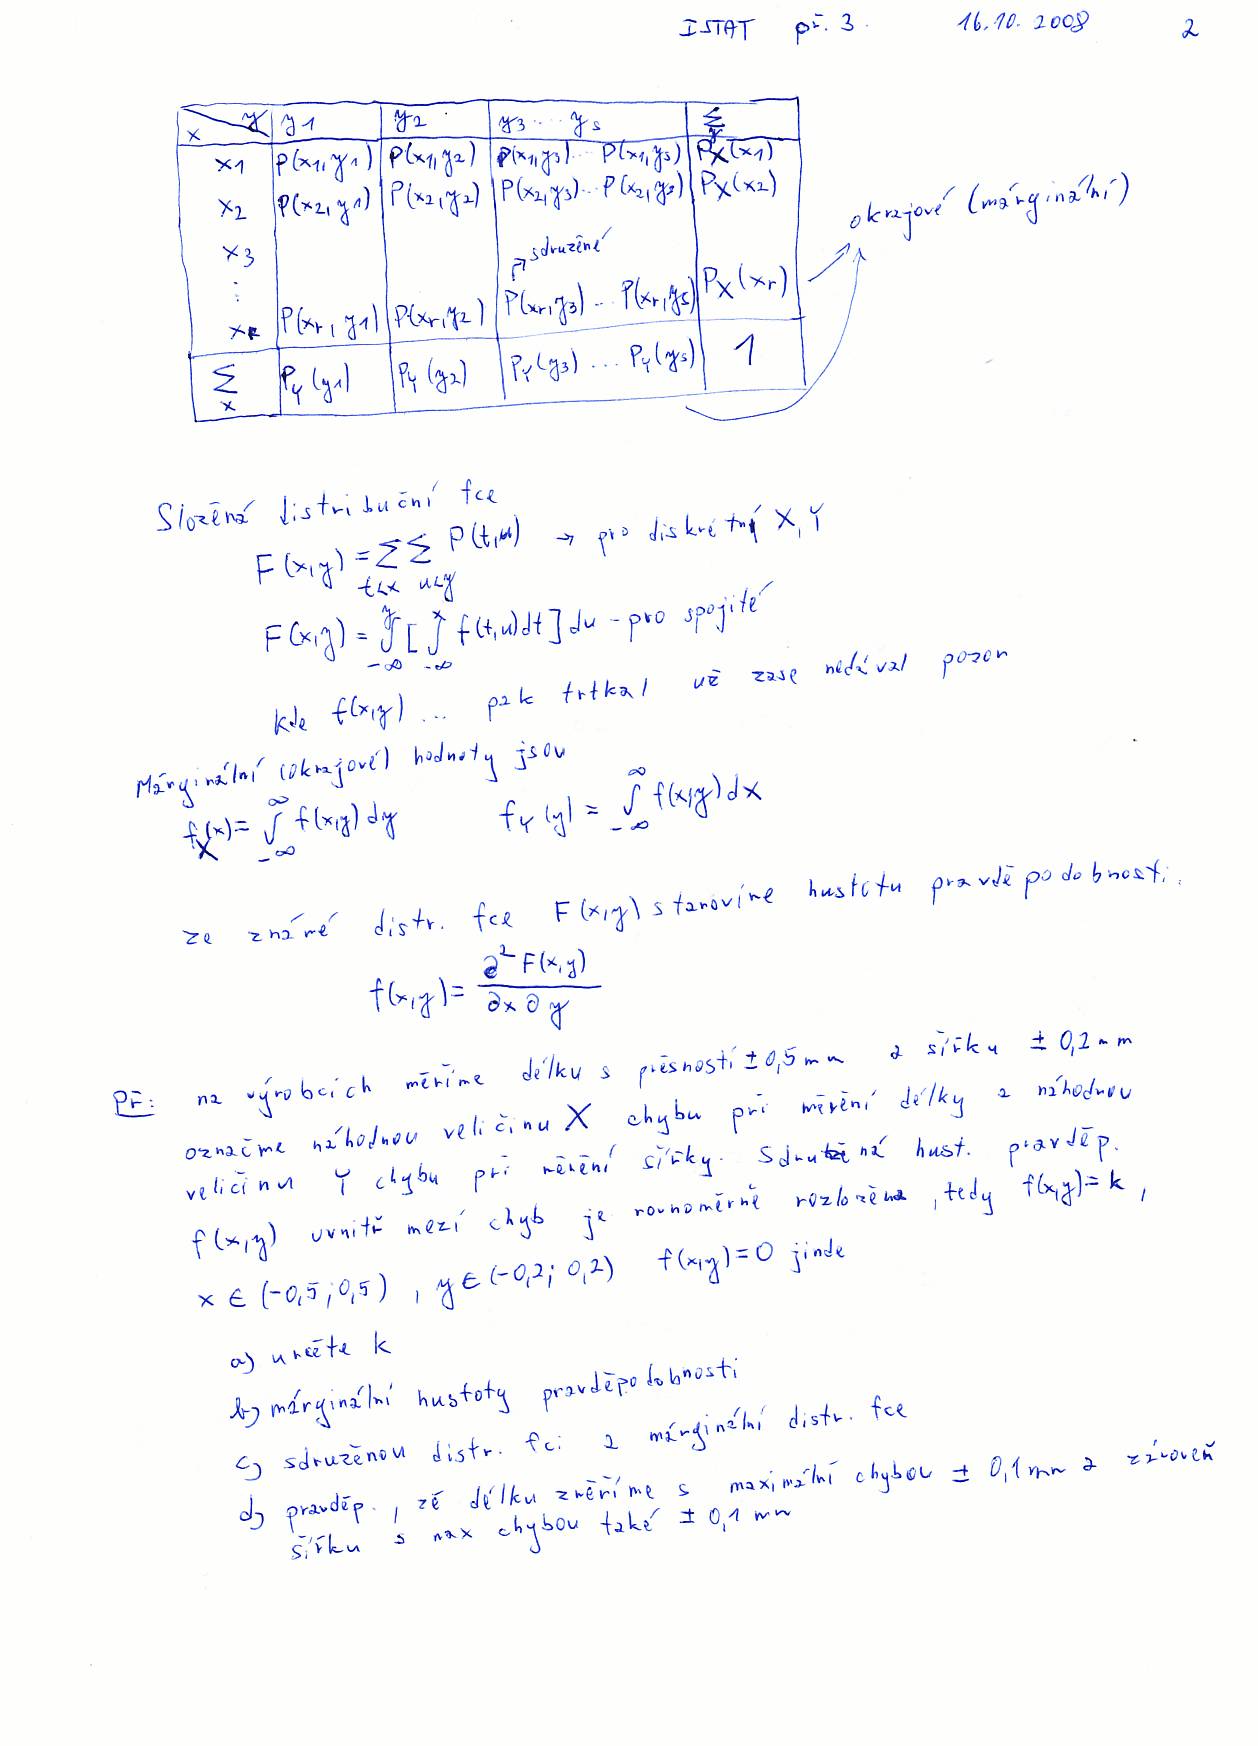 ISTAT př. 3. 16.10. 2008 2
x y y1 y2 y3 .... ys Σ y
x1 P(x1,y1) P(x1,y2) P(x1,y3) ... P(x1,ys) PX(x1)
x2 P(x2,y1) P(x2,y2) P(x2,y3) ... P(x2,ys) PX(x2)
okrajové (márginální)
x3 sdružené
⋮
xr P(xr,y1) P(xr,y2) P(xr,y3) ... P(xr,ys) PX(xr)
Σ x PY(y1) PY(y2) PY(y3) .... PY(ys) 1
Složená distribuční fce
F(x,y) = Σ t<x Σ u<y P(t,u) → pro diskrétný X,Y
F(x,y) = ∫ -∞ y [ ∫ -∞ x f(t,u)dt ] du - pro spojité
kde f(x,y) ... pak trtkal už zase nedával pozor
Márginální (okrajové) hodnoty jsou
fX(x) = ∫ -∞ ∞ f(x,y) dy fY(y) = ∫ -∞ ∞ f(x,y) dx
ze známé distr. fce F(x,y) stanovíme hustotu pravděpodobnosti.
f(x,y) = ∂² F(x,y) / ∂x ∂y
Př: na výrobcích měříme délku s přesností ± 0,5 mm a šířku ± 0,2 mm
označme náhodnou veličinu X chybu při měření délky a náhodnou
veličinu Y chybu při měření šířky. Sdružená hust. pravděp.
f(x,y) uvnitř mezí chyb je rovnoměrně rozložena, tedy f(x,y) = k,
x ∈ (-0,5 ; 0,5) , y ∈ (-0,2 ; 0,2) f(x,y) = 0 jinde
a) určete k
b) márginální hustoty pravděpodobnosti
c) sdruženou distr. fci a márginální distr. fce
d) pravděp., že délku změříme s maximální chybou ± 0,1 mm a zároveň
šířku s max chybou také ± 0,1 mm